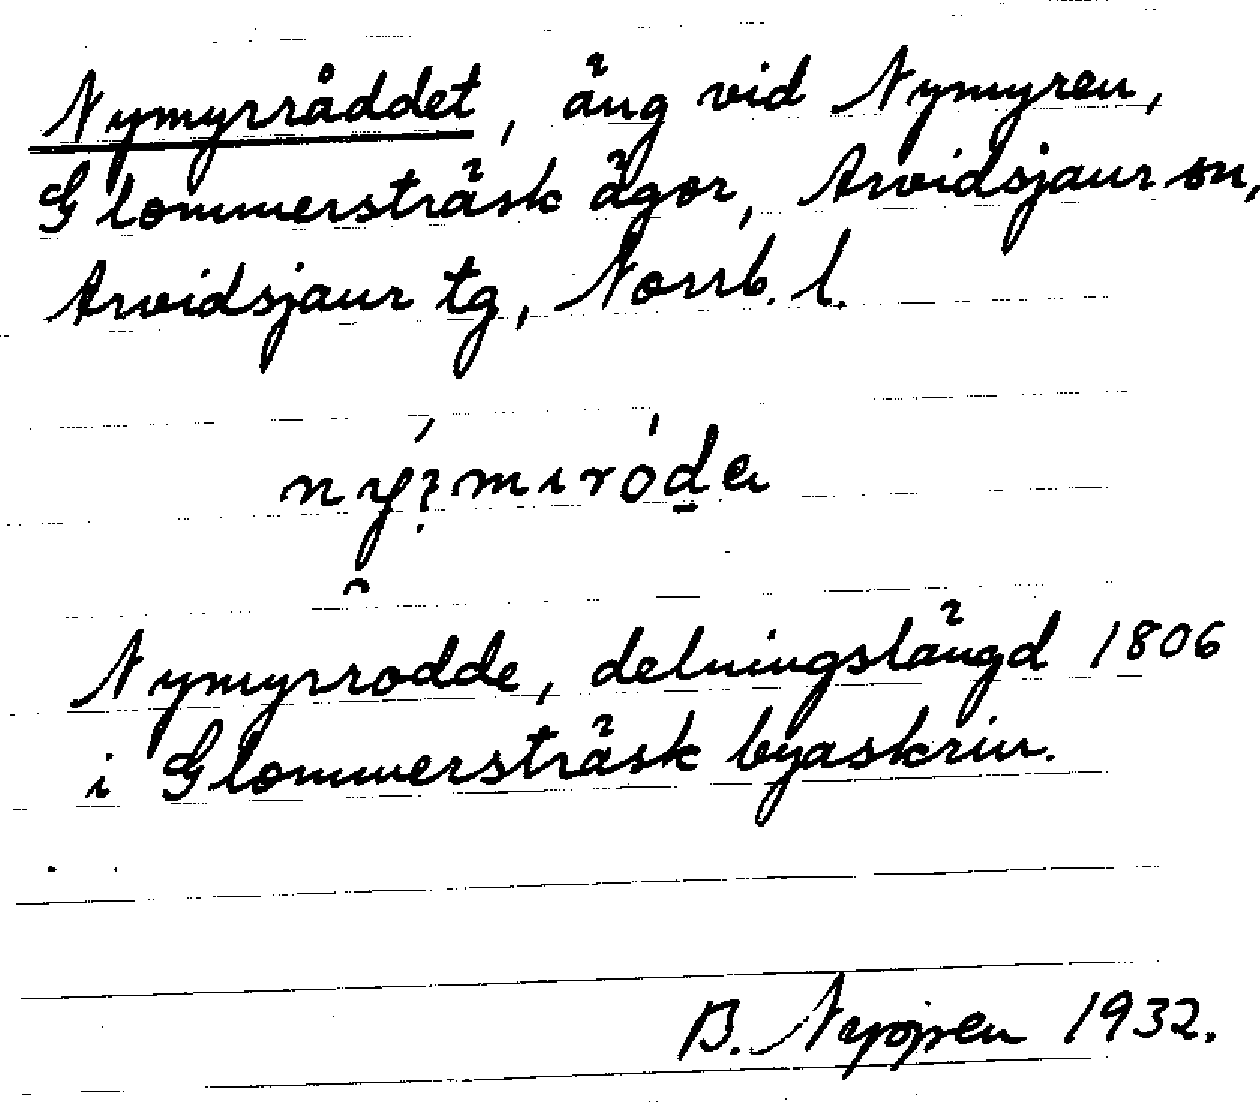 Nymyrråddet, äng vid Nymyren,
Glommersträsk ägor, Arvidsjaur sn,
Arvidsjaur tg, Norrb. l.
Nymyrrodde, delningslängd 1806
i Glommersträsk byaskrin.
B. 1932.